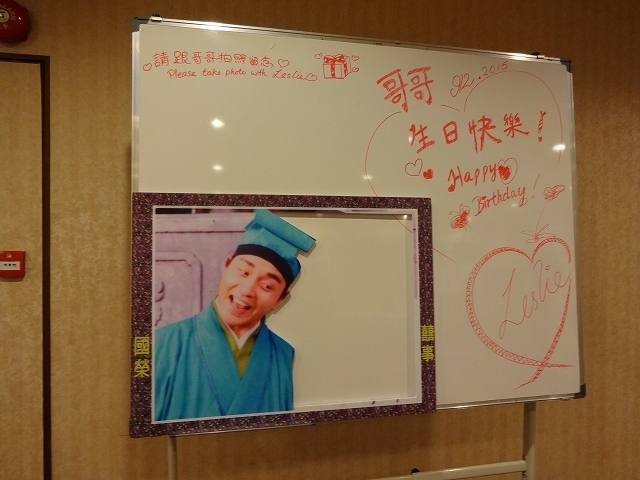 請跟哥哥拍照留念
Please take photo with Leslie
哥哥
9.12.2015
生日快樂!
Happy
Birthday!
Leslie
國榮
囍事